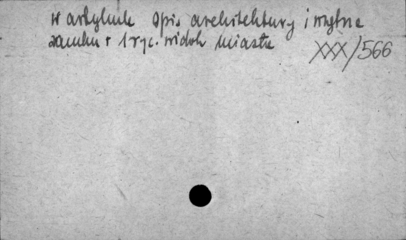 w artykule opis architektury i wnętrz
zamku + 1 ryc. widok miasta
XXX/566